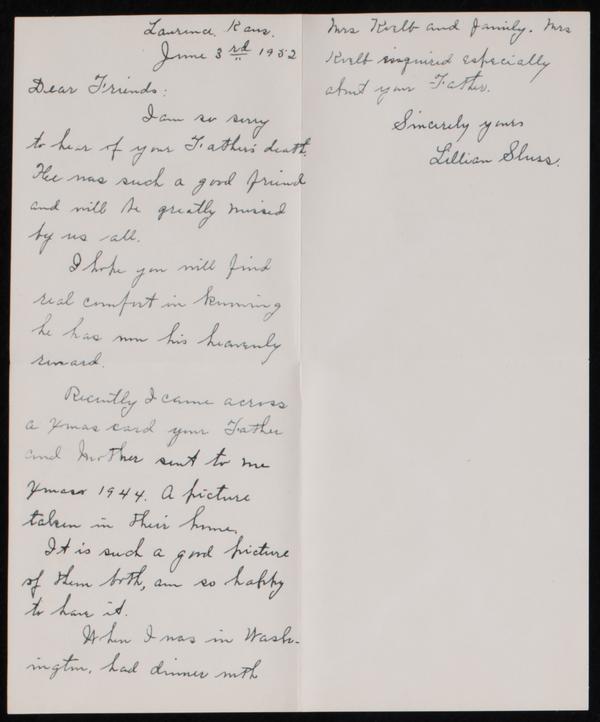 Lawrence, Kans.
June 3rd 1952
Dear Friends:
I am so sorry
to hear of your Father's death.
He was such a good friend
and will be greatly missed
by us all.
I hope you will find
real comfort in knowing
he has won his heavenly
reward.
Recently I came across
a Xmas card your Father
and Mother sent to me
Xmas 1944. A picture
taken in their home.
It is such a good picture
of them both, am so happy
to have it.
When I was in Wash-
ington, had dinner with
Mrs and family. Mrs
inquired especially
about your Father.
Sincerely yours
Lillian Sluss.